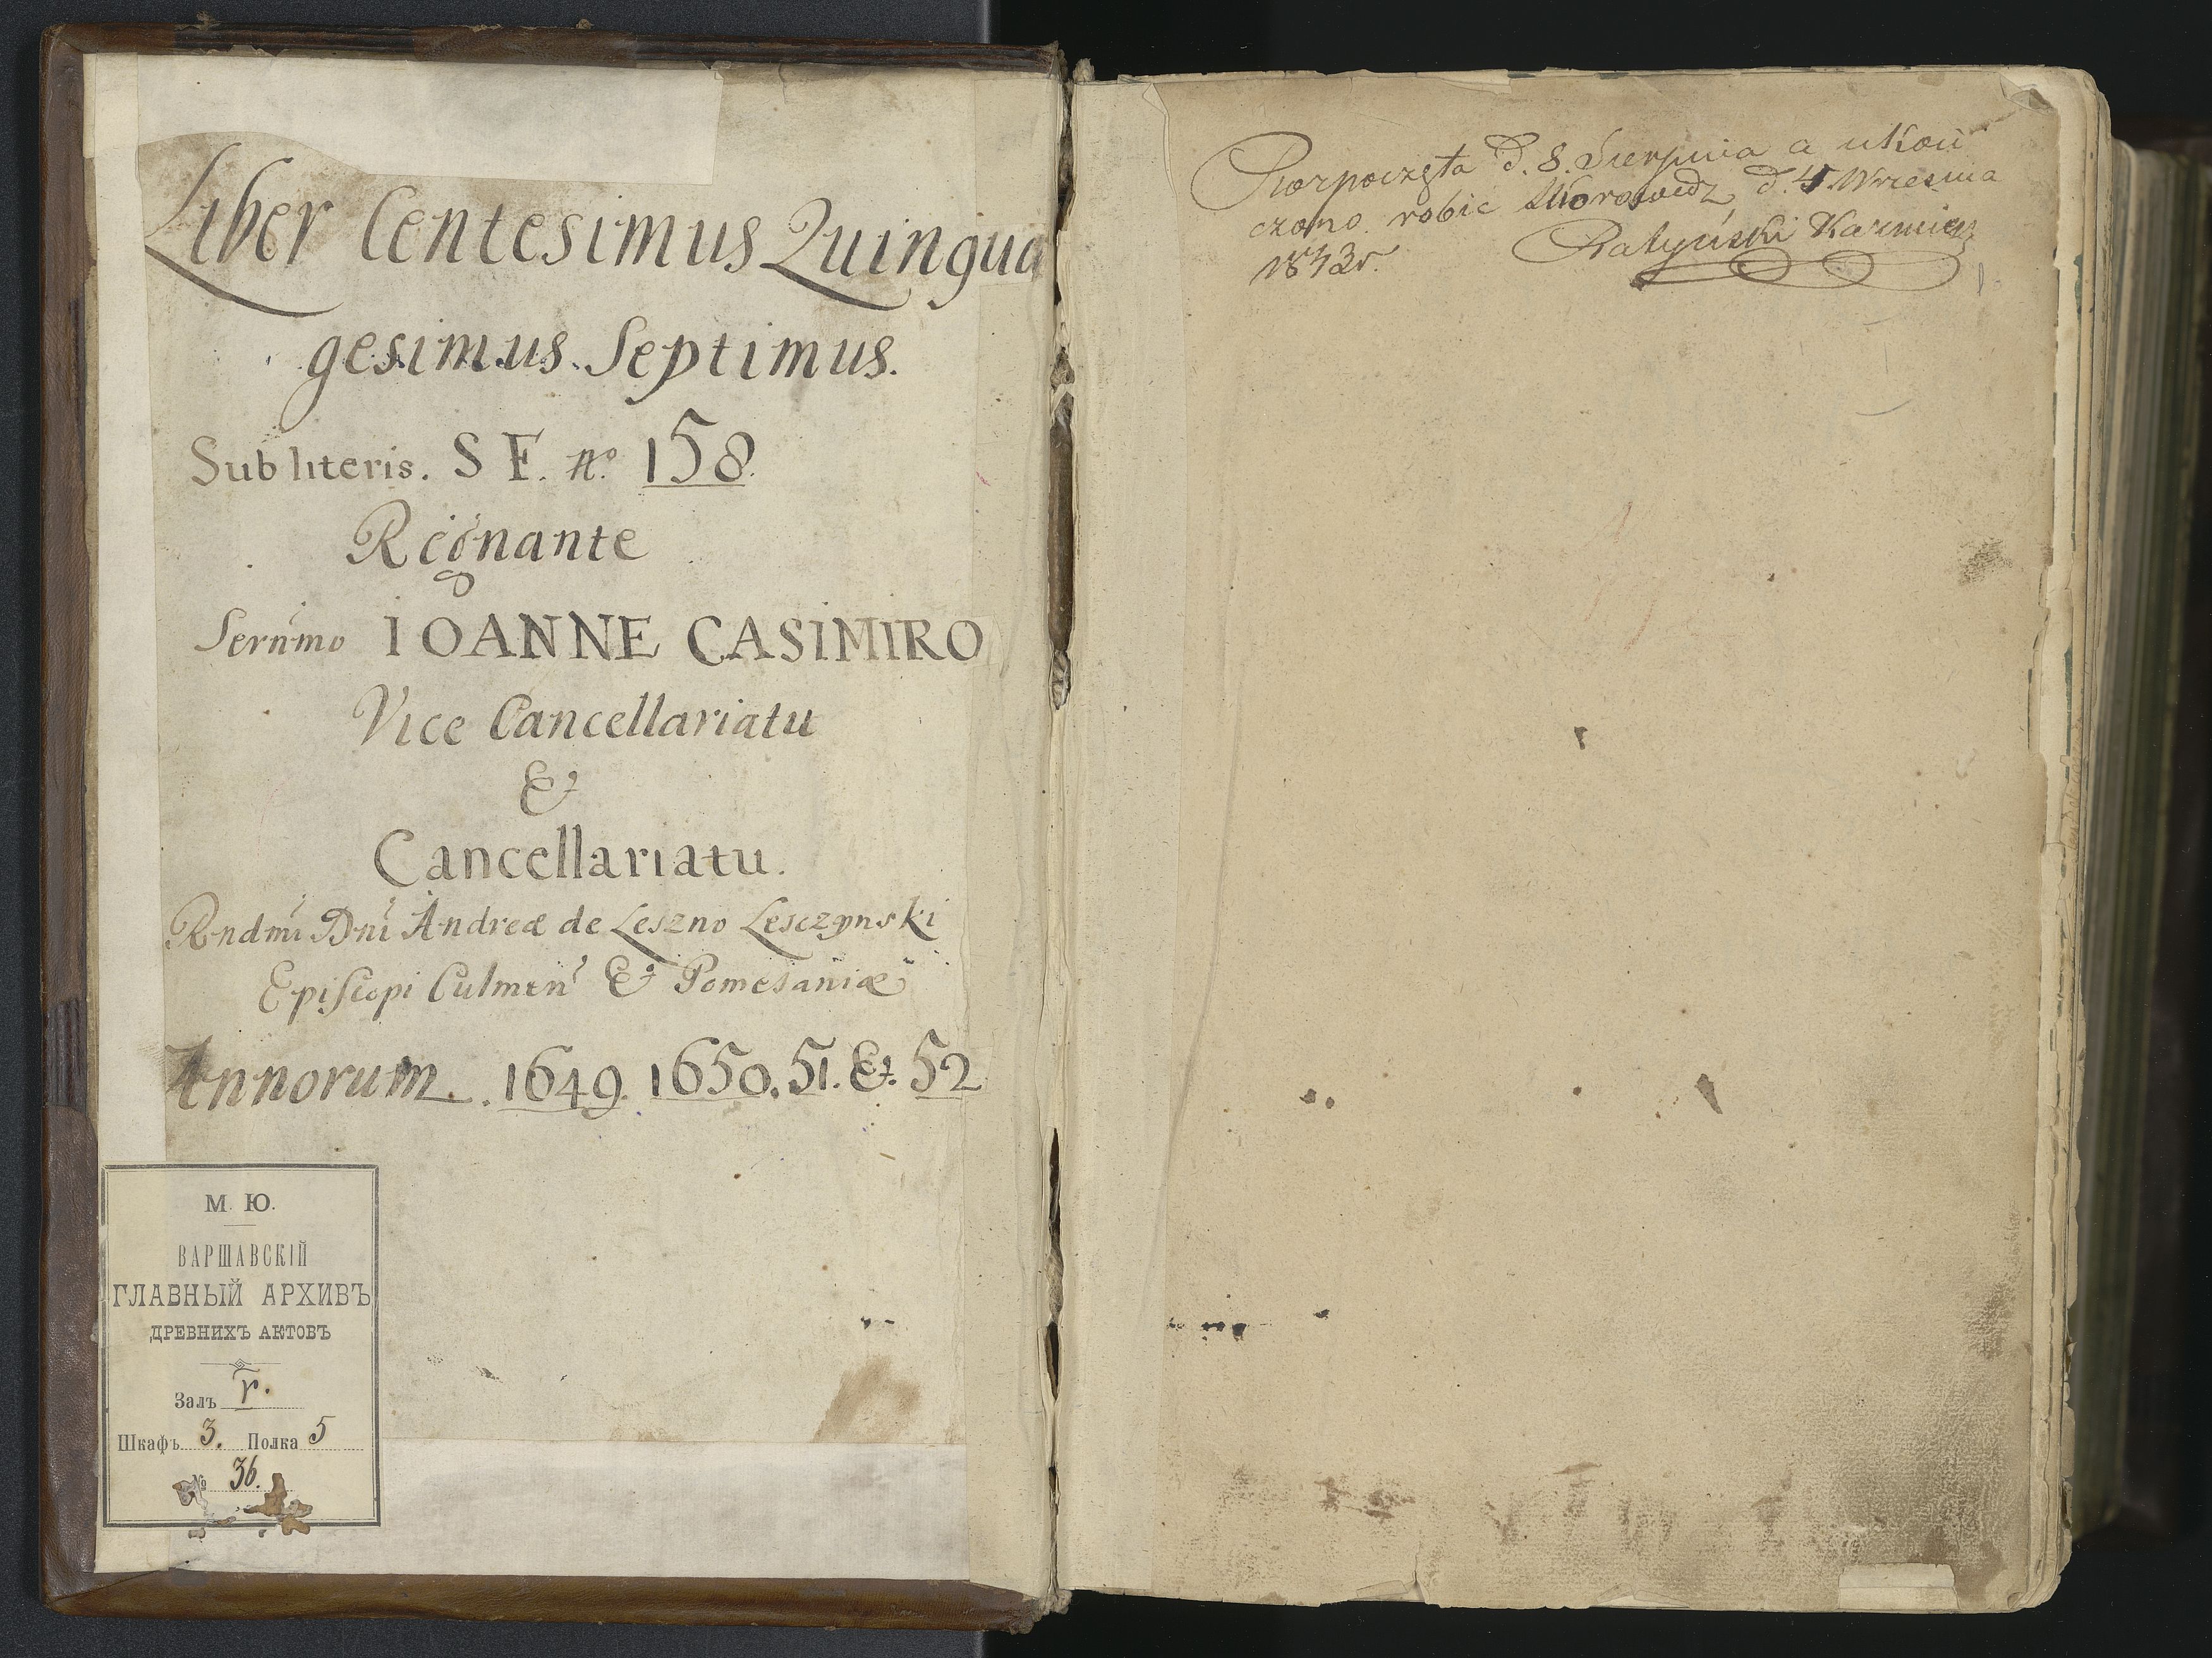 Liber Centesimus Quinqua
gesimus Septimus.
Sub literis. S F. nº 158.
Regnante
Sernmo IOANNE CASIMIRO
Vice Cancellariatu
&
Cancellariatu.
Rndmi Dni Andreæ de Leszno Lesczynski
Episcopi Culmen & Pomesaniæ
Annorum. 1649. 1650. 51. &. 52
М. Ю.
ВАРШАВСКІЙ
ГЛАВНЫЙ АРХИВЪ
ДРЕВНИХЪ АКТОВЪ
Залъ
Шкафъ 3. Полка 5
№ 36.
Rozpoczęta d. 8. Sierpnia a ukoń
czono robić Skorowidz d. 4 Września
1843r. Ratyński Kazmierz